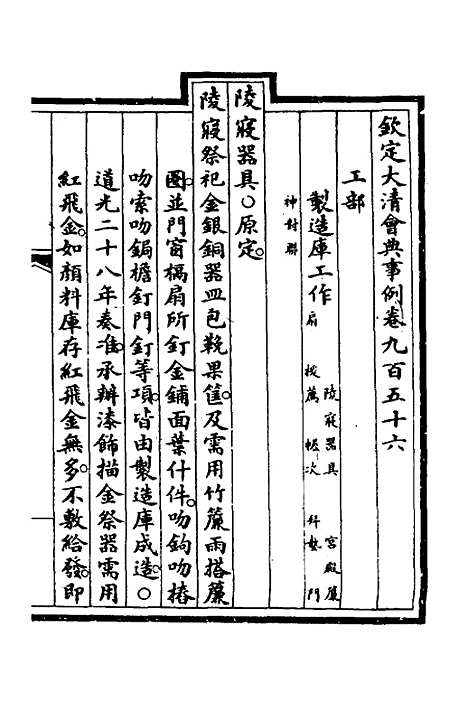 欽定大清會典事例卷九百五十六
工部
製造庫工作
陵寢器具 宮殿簾
扇 門
神對聯
陵寢器具〇原定。
陵寢祭祀金銀銅器皿包鞔果筐。及需用竹簾雨搭簾
圈。並門窗槅扇所釘金鋪面葉什件。吻鉤吻樁
吻索吻鋦檐釘門釘等項。皆由製造庫成造。〇
道光二十八年奏准。承辦漆飾描金祭器需用
紅飛金。如顏料庫存紅飛金無多。不敷給發。即